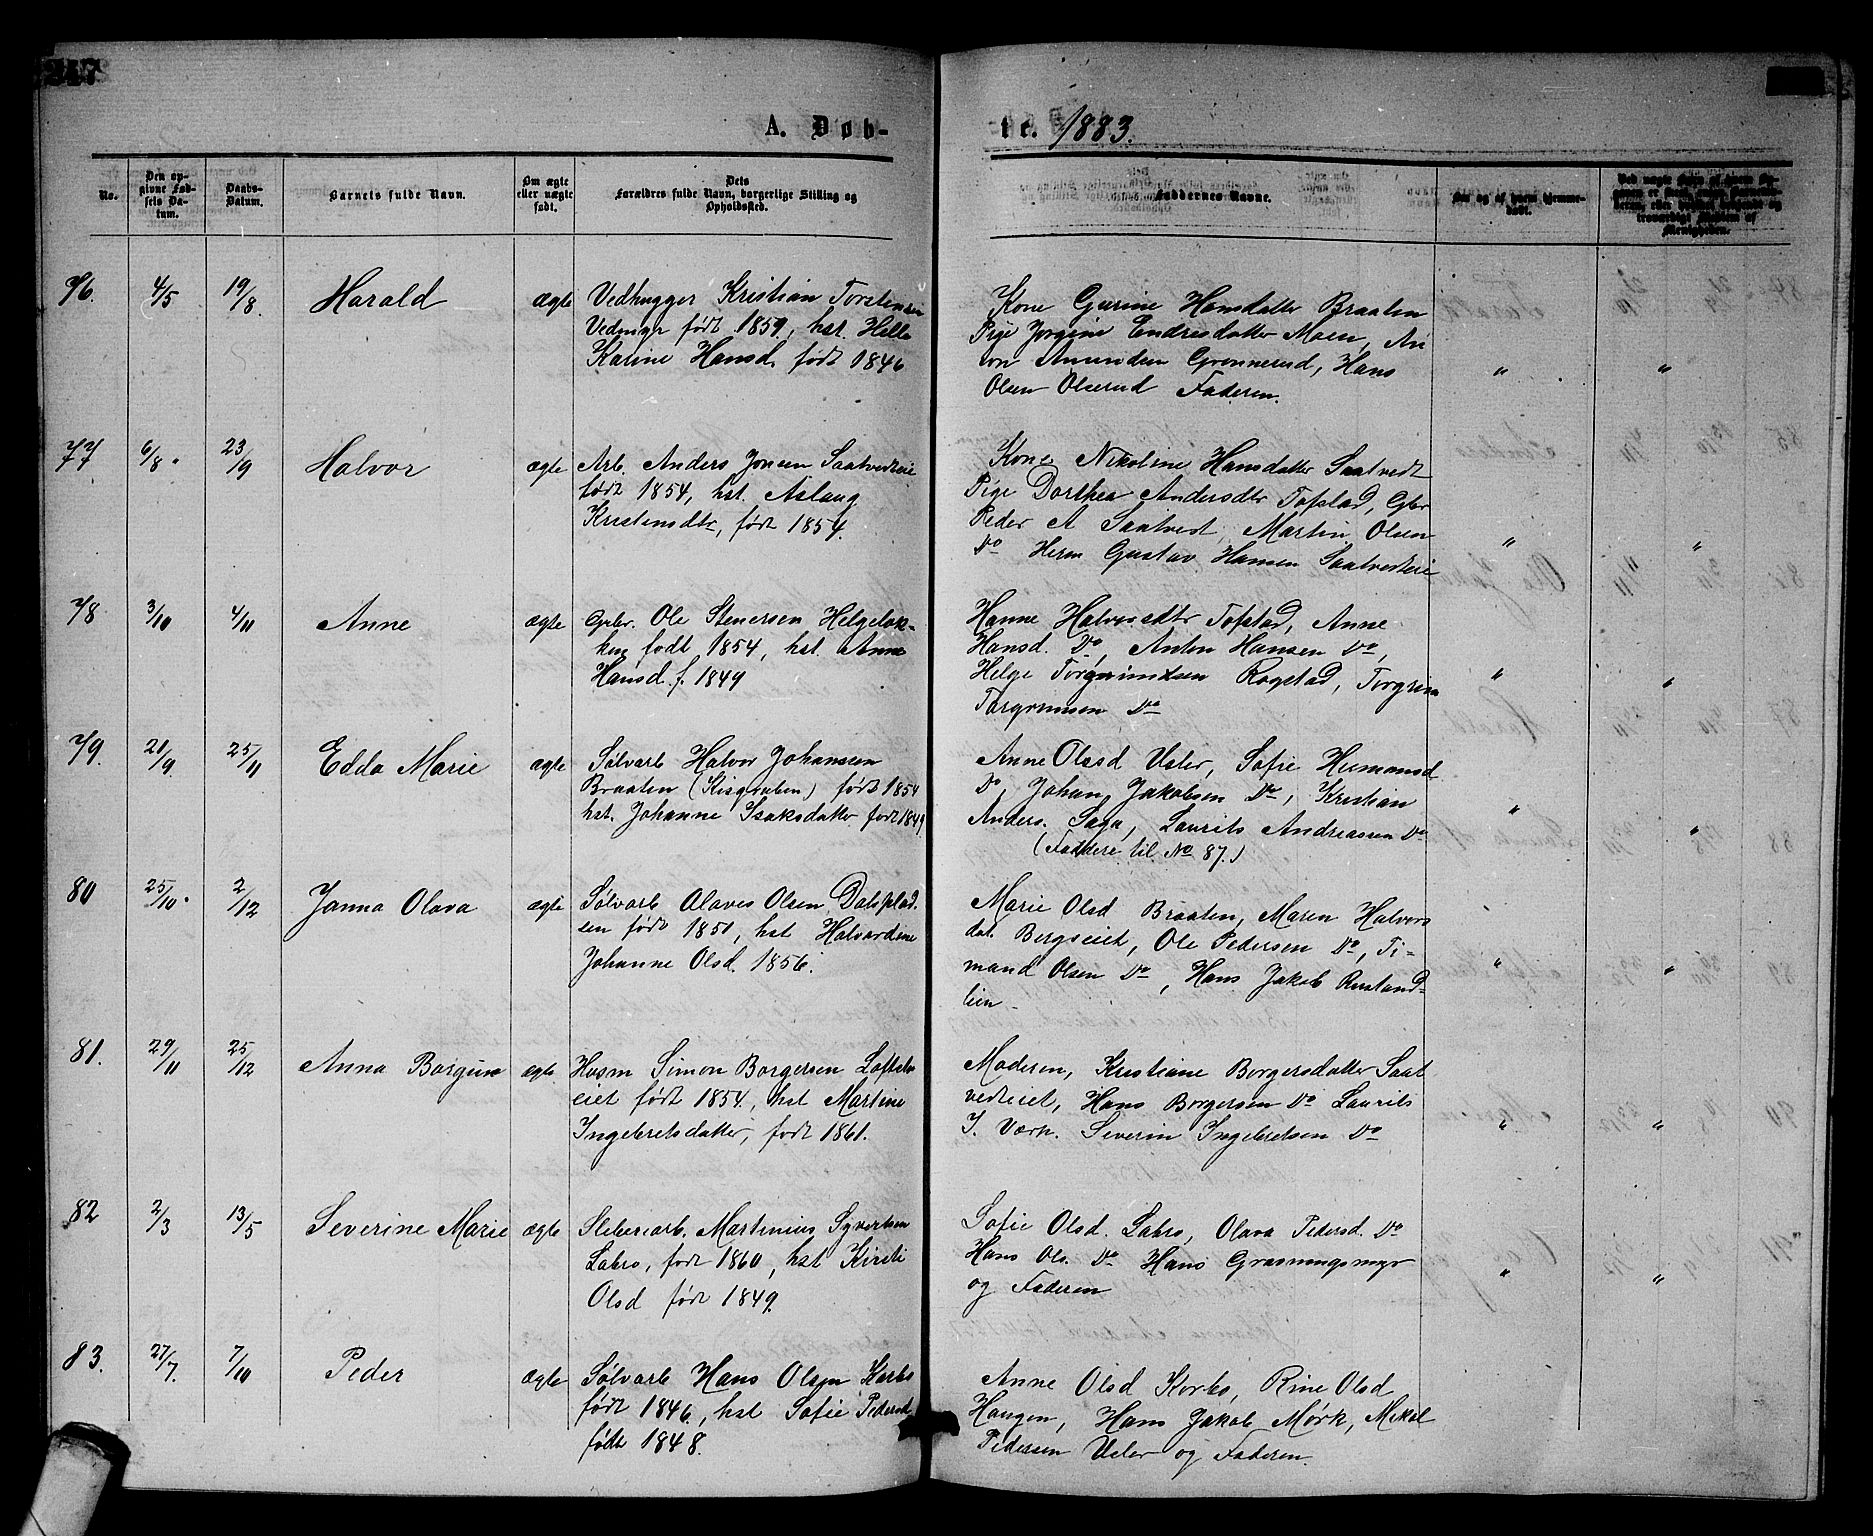 247
A. Døb-
te. 1883.
No.
Den op-
givne Fød-
sels Da-
tum.
Daabs-
Datum.
Barnets fulde Navn.
Om ægte
eller uægte
født.
Dets
Forældres fulde Navn, borgerlige Stilling og
Opholdssted.
Faddernes Navne.
Naar og af hvem hjemme-
døbt.
76. 4/5 19/8. Harald ægte
Vedhugger Kristian Torstensen
født 1859, hst. Helle
Katine Hansd. født 1846
Kone Gurine Hansdatter Braaten
Pige Jørgine Endresdatter Moen, An
ton Amundsen Grønnerud, Hans
Olsen Olserud Faderen.
" "
77 6/8. 23/9 Halvor ægte
Arb. Anders Jonsen Saatvedteie
født 1854, hst. Aslaug
Kristensdtr, født 1854.
Kone Nikoline Hansdatter Saatvedt
Pige Dorthea Andersdtr Tofstad, Gbr
Peder A Saatvedt, Martin Olsen
Do Herm Gustav Hansen Saatvedteie
" "
78 3/10 4/11 Anne ægte
Gbr. Ole Stenersen Helgeløk-
ken født 1854, hst. Anne
Hansd. f. 1849
Hanne Halvorsdtr Tofstad, Anne
Hansd. Do, Anton Hansen Do,
Helge Torgrimsen Rogstad, Torgrim
Torgrimsen Do
" "
79. 21/9 25/11 Edda Marie ægte
Sølvarb Halvor Johansen
Braaten (Kisgruben) født 1854
hst. Johanne Isaksdatter født 1849,
Anne Olsd Veler, Sofie Hermansd
Do, Johan Jakobsen Do, Kristian
Anders. Saga, Laurits Andreassen Do
(Faddere til No 87.)
" "
80 25/10. 2/12 Janna Olava ægte
Sølvarb Olaves Olsen Dalsplad.
sen født 1851, hst Halvardine
Johanne Olsd. 1856.
Marie Olsd Braaten, Maren Halvors
dat. Bergseiet, Ole Pedersen Do, Ti-
mand Olsen Do, Hans Jakob Rustand-
lien
" "
81. 29/11 25/12 Anna Borgine ægte
Husm Simon Borgersen Loftsb
eiet født 1854, hst Martine
Ingebretsdatter, født 1861.
Moderen, Kristiane Borgersdatter Saat
vedteiet, Hans Borgersen Do Laurits
J. Værk. Severin Ingebretsen Do
" "
82 2/3 13/5 Severine Marie ægte
Sliberiarb. Martinius Syvertsen
Labro, født 1860, hst Kirsti
Olsd født 1849.
Sofie Olsd. Labro, Olava Pedersd. Do
Hans Ols. Do Hans Grosvningsmyr
og Faderen
" "
83. 27/7. 7/10 Peder ægte
Sølvarb Hans Olsen Korbo
født 1846, hst Sofie Pedersd
født 1848.
Anne Olsd Korbo, Rine Olsd
Haugen, Hans Jakob Mørk, Mikal
Pedersen Veler og Faderen.